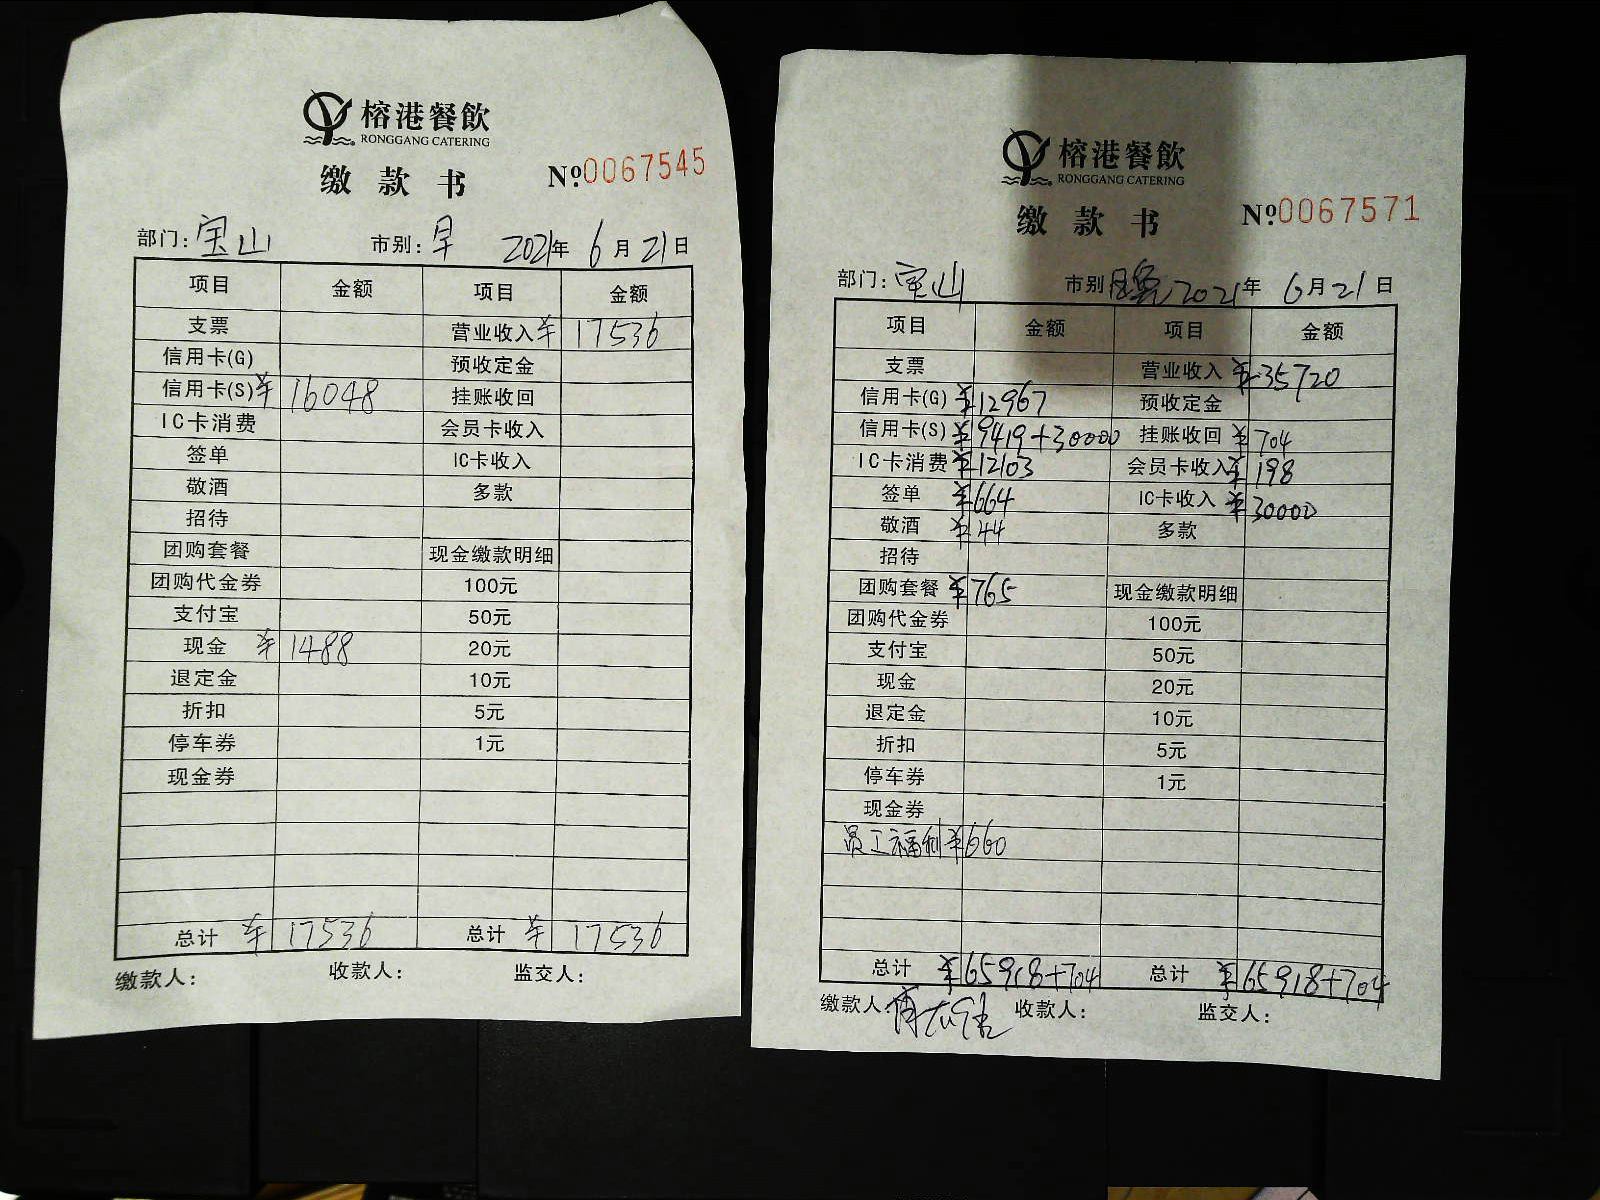 榕港餐飲
RONGGANG CATERING
缴款书 Nº 0067545
部门: 宝山 市别: 早 2021年 6月21日
项目 金额 项目 金额
支票 营业收入 ¥17536
信用卡(G) 预收定金
信用卡(S) ¥16048 挂账收回
IC卡消费 会员卡收入
签单 IC卡收入
敬酒 多款
招待
团购套餐 现金缴款明细
团购代金券 100元
支付宝 50元
现金 ¥1488 20元
退定金 10元
折扣 5元
停车券 1元
现金券
总计 ¥17536 总计 ¥17536
缴款人: 收款人: 监交人:
榕港餐飲
RONGGANG CATERING
缴款书 Nº 0067571
部门: 宝山 市别 2021年 6月21日
项目 金额 项目 金额
支票 营业收入 ¥35720
信用卡(G) ¥12967 预收定金
信用卡(S) ¥9419+30000 挂账收回 ¥704
IC卡消费 ¥12103 会员卡收入 ¥198
签单 ¥664 IC卡收入 ¥30000
敬酒 ¥44 多款
招待
团购套餐 ¥765 现金缴款明细
团购代金券 100元
支付宝 50元
现金 20元
退定金 10元
折扣 5元
停车券 1元
现金券
员工福利 ¥660
总计 ¥65918+704 总计 ¥65918+704
缴款人: 收款人: 监交人: